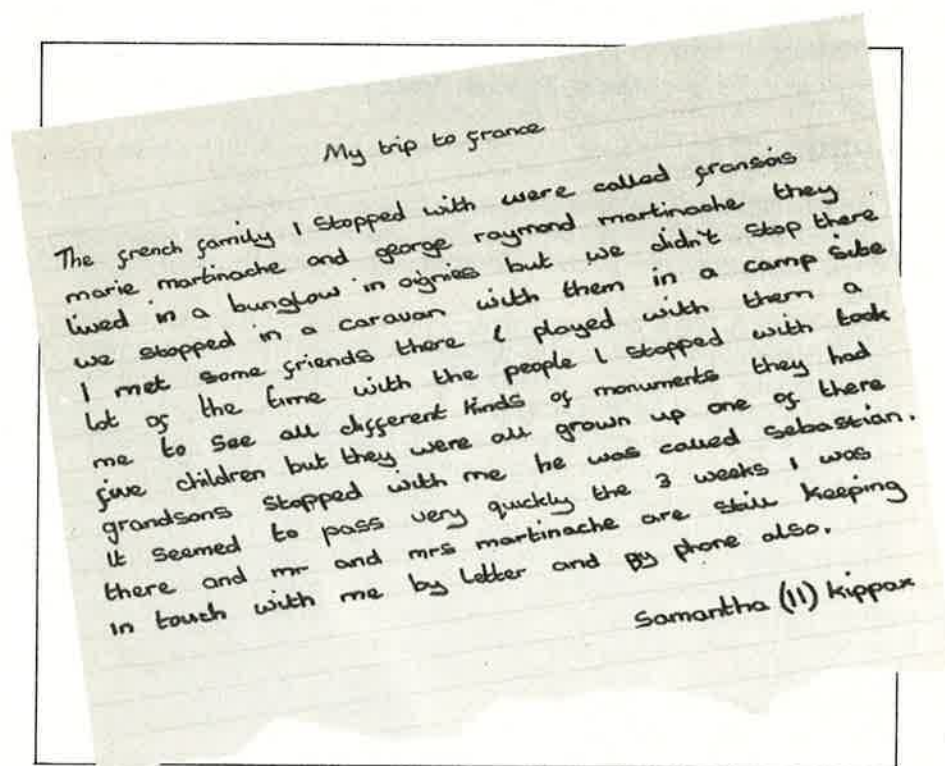 My trip to france
The french family I stopped with were called fransois
marie martinache and george raymond martinache they
lived in a bunglow in oignies but we didn't stop there
we stopped in a caravan with them in a camp site
I met some friends there & played with them a
lot of the time with the people I stopped with took
me to see all different kinds of monuments they had
five children but they were all grown up one of there
grandsons stopped with me he was called sebastian.
it seemed to pass very quickly the 3 weeks I was
there and mr and mrs martinache are still keeping
in touch with me by letter and By phone also.
Samantha (11) Kippax